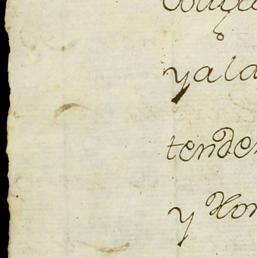 y ala
tender
y Hon